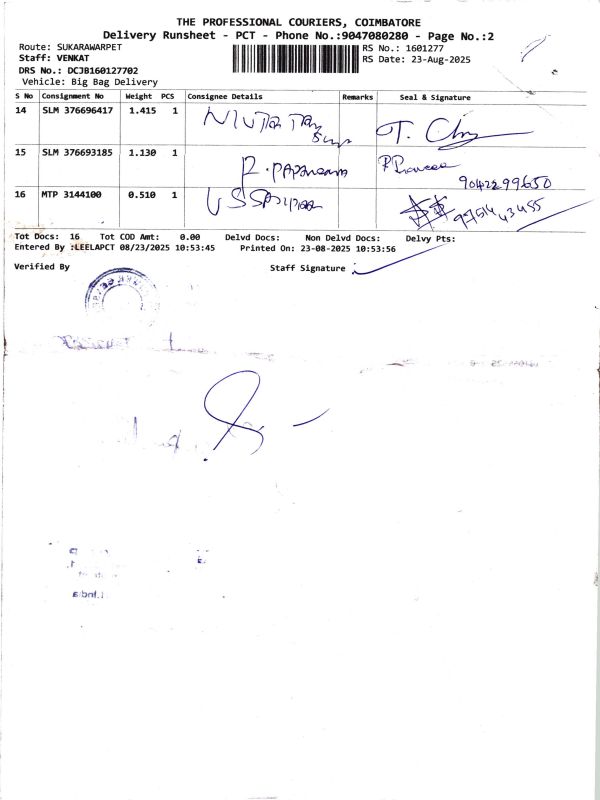 THE PROFESSIONAL COURIERS, COIMBATORE
Delivery Runsheet - PCT - Phone No.:9047080280 - Page No.:2
Route: SUKARAWARPET
Staff: VENKAT
DRS No.: DCJB160127702
Vehicle: Big Bag Delivery
RS No.: 1601277
RS Date: 23-Aug-2025
S No Consignment No Weight PCS Consignee Details Remarks Seal & Signature
14 SLM 376696417 1.415 1
15 SLM 376693185 1.130 1
9042299650
16 MTP 3144100 0.510 1
Tot Docs: 16 Tot COD Amt: 0.00 Delvd Docs: Non Delvd Docs: Delvy Pts:
Entered By :LEELAPCT 08/23/2025 10:53:45 Printed On: 23-08-2025 10:53:56
Verified By Staff Signature